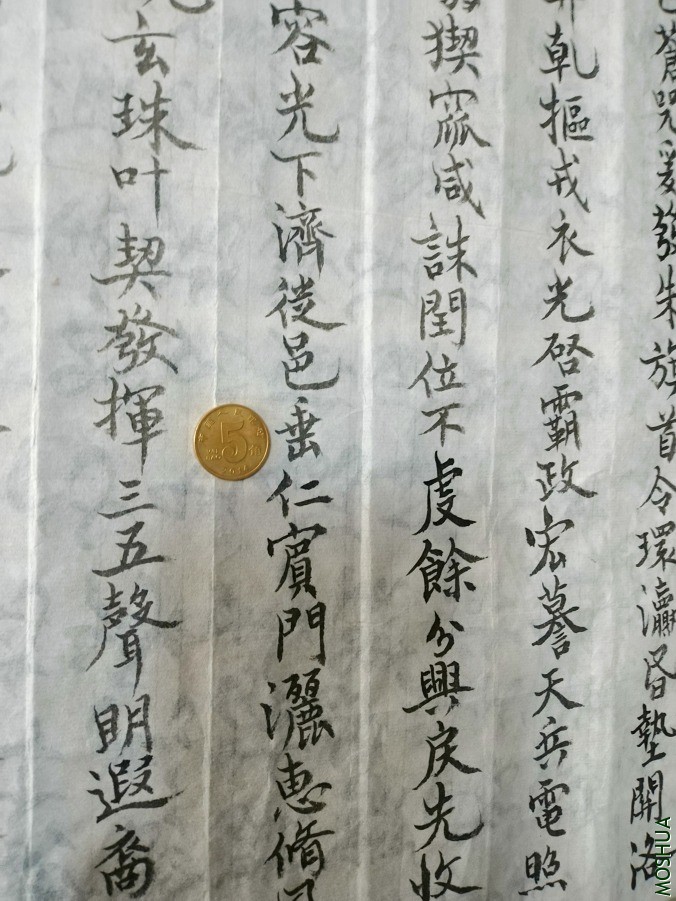 蒼兕爰發朱旗首令環瀛昏墊開洛
乾樞戎衣光啓霸政宏謩天兵電照
猰窳咸誅閏位不虔餘分興戾先收
容光下濟徙邑垂仁賓門灑惠脩
玄珠叶契發揮三五聲明遐裔
5
MOSHUA